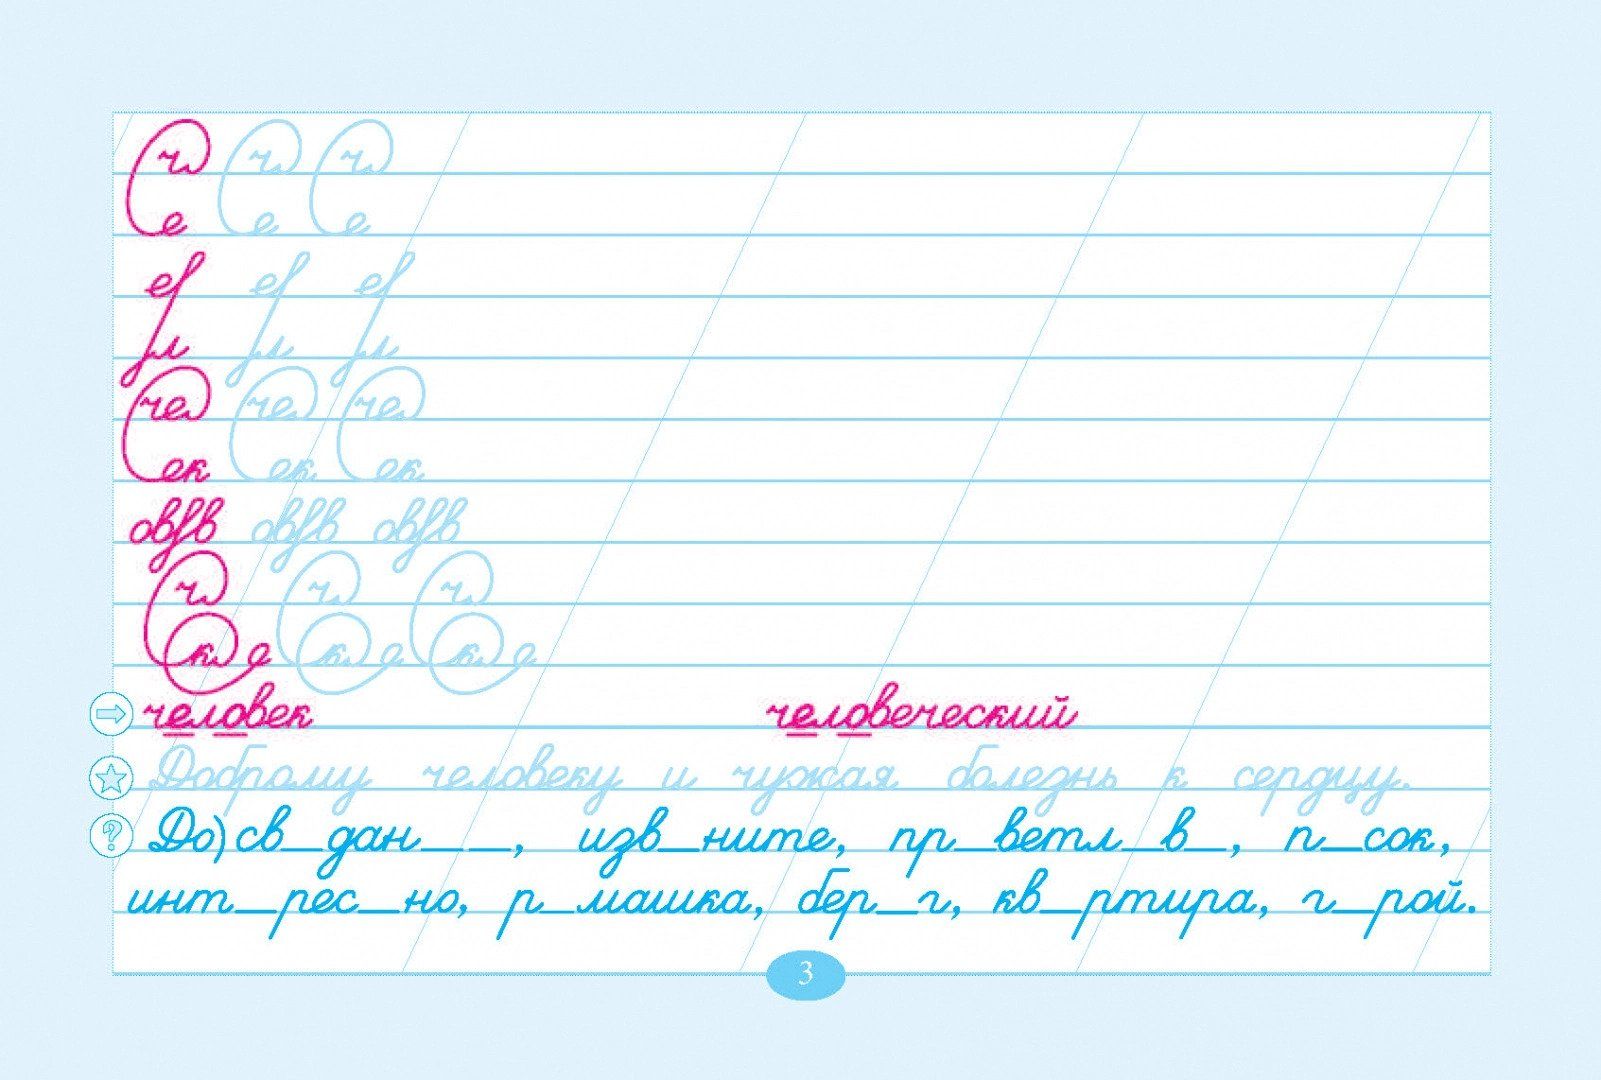 ч ч ч
е е е
еf еf еf
м м м
чем чем чем
ек ек ек
овfв овfв овfв
ч ч ч
к е к е к е
человек человеческий
Доброму человеку и чужая болезнь к сердцу.
До)св_дан_ _, изв_ните, пр_ветл_в_, п_сок,
инт_рес_но, р_машка, бер_г, кв_ртира, г_рой.
3